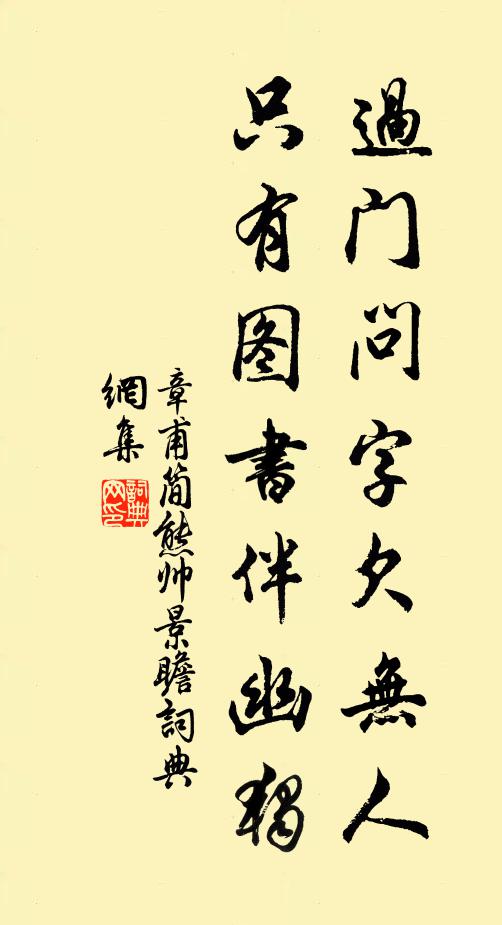 過门问字久無人
只有图書伴幽獨
章甫简熊帅景瞻詞典
網集
詞典
网印